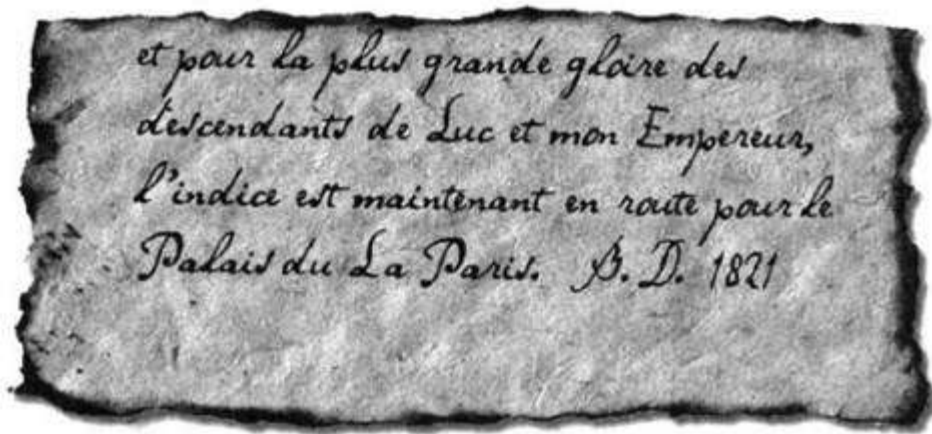 et pour la plus grande gloire des
descendants de Luc et mon Empereur,
l'indice est maintenant en route pour le
Palais du La Paris. B. D. 1821